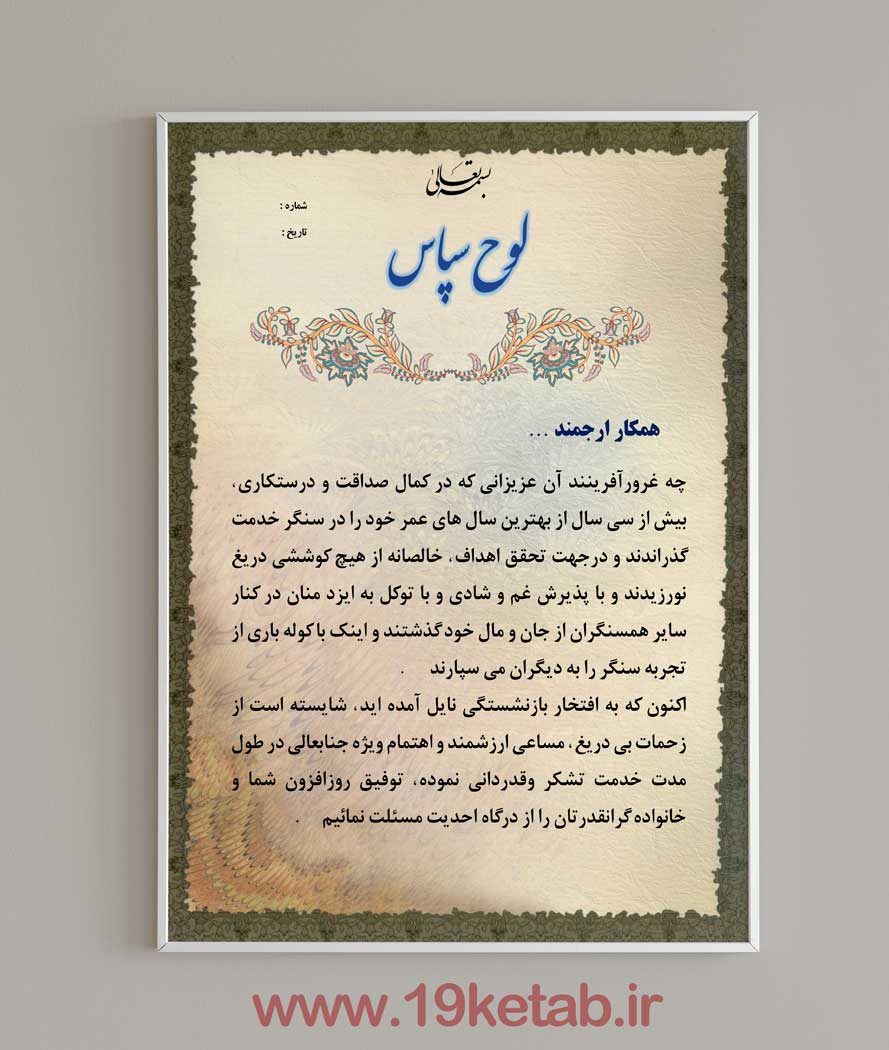 بسمه تعالی
شماره :
تاریخ :
لوح سپاس
همکار ارجمند ...
چه غرورآفرینند آن عزیزانی که در کمال صداقت و درستکاری،
بیش از سی سال از بهترین سال های عمر خود را در سنگر خدمت
گذراندند و درجهت تحقق اهداف، خالصانه از هیچ کوششی دریغ
نورزیدند و با پذیرش غم و شادی و با توکل به ایزد منان در کنار
سایر همسنگران از جان و مال خودگذشتند و اینک باکوله باری از
تجربه سنگر را به دیگران می سپارند .
اکنون که به افتخار بازنشستگی نایل آمده اید، شایسته است از
زحمات بی دریغ، مساعی ارزشمند و اهتمام ویژه جنابعالی در طول
مدت خدمت تشکر وقدردانی نموده، توفیق روزافزون شما و
خانواده گرانقدرتان را از درگاه احدیت مسئلت نمائیم .
www.19ketab.ir